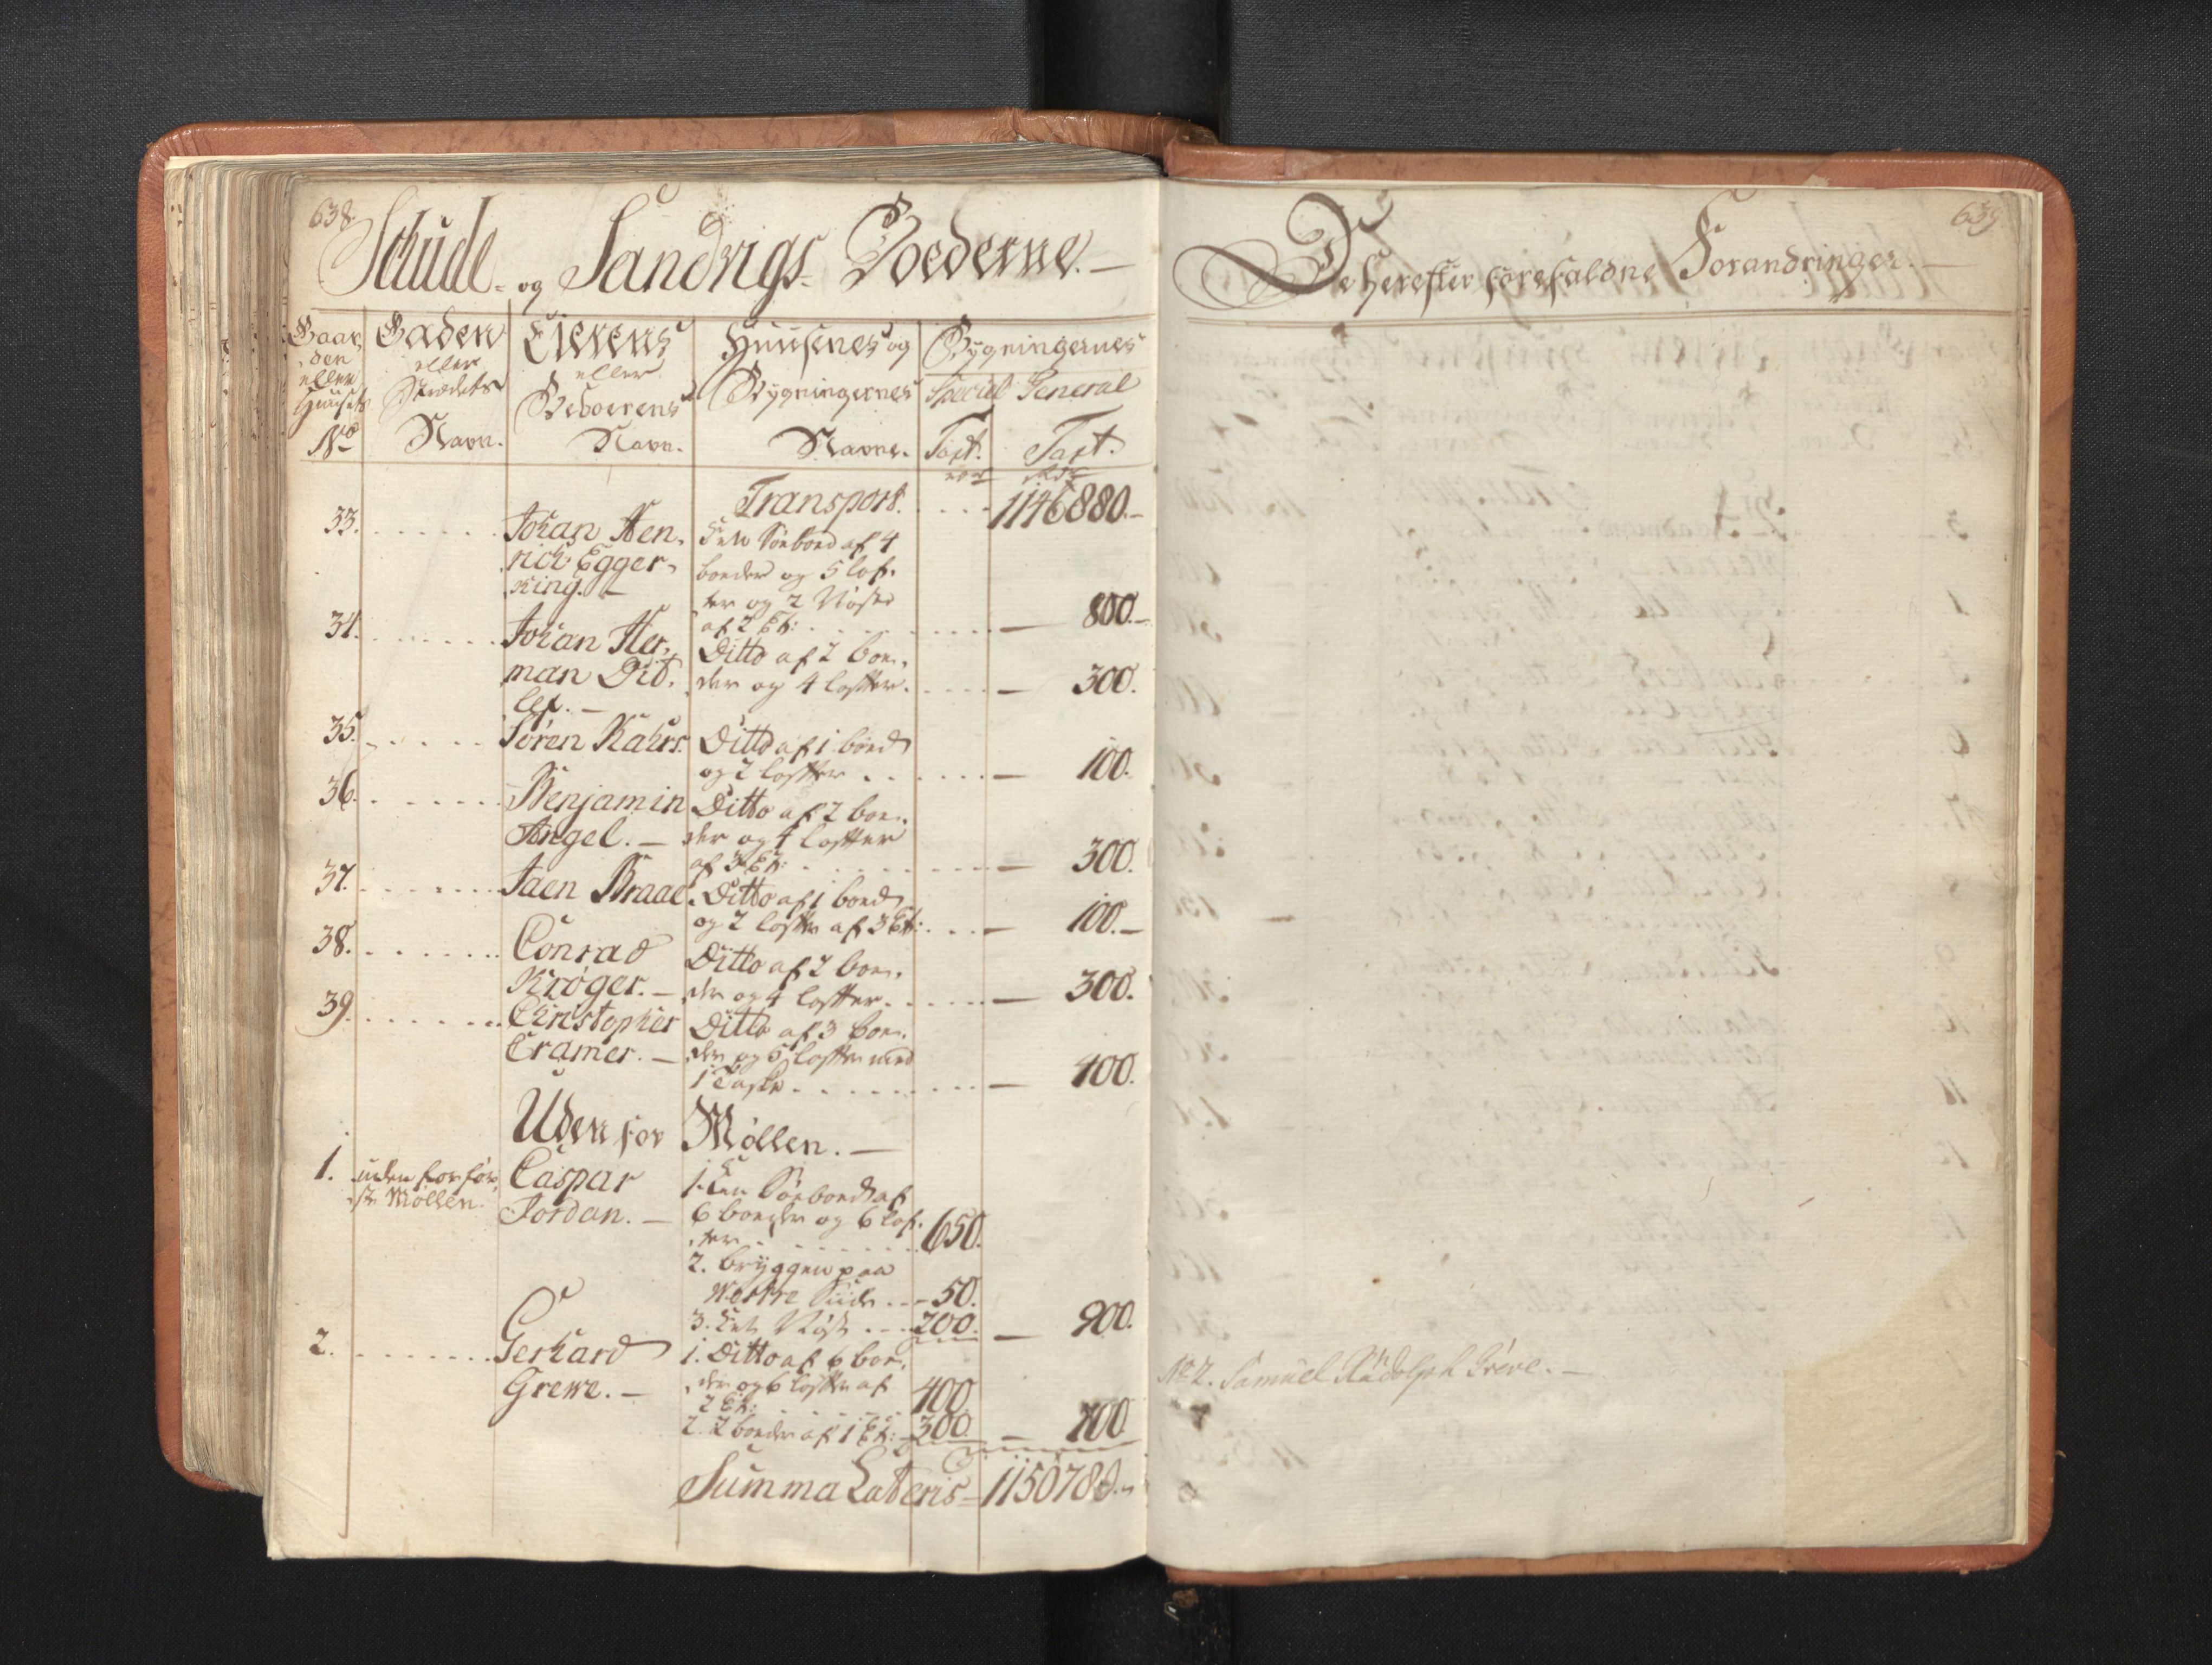 638.
Schude- og Sandvigs- Boederne.-
Gaar-
den
eller
Huusets
No
Gaden
eller
Strædets
Navn.
Eierens
eller
Beboerens
Navn.
Huusenes og
Bygningernes
Navne.
Bygningernes
Special General
Taxt. Taxt.
Transport. . . . . 1146880.-
33. . . . . . Johan Hen-
rich Egger-
king. -
Een Søebood af 4
boeder og 5 lof-
ter og 2 Nøster
af 2 Et: . . . . . - 800.-
34. . . . . . Johan Her-
man Dit-
lef. -
Ditto af 2 boe-
der og 4 loffter. . . . - 300.
35. . . . . . Søren Kahrs.
Ditto af 1 boed
og 2 loffter . . . . . - 100.
36. . . . . . Benjamin
Angel. -
Ditto af 2 boe-
der og 4 loffter
af 3 Et: . . . . . - 300.
37. . . . . . Jaen Braae.
Ditto af 1 boed
og 2 loffter af 3 Et: . . . - 100.-
38. . . . . . Conrad
Krøger. -
Ditto af 2 boe-
der og 4 loffter. . . . . - 300.
39. . . . . . Christopher
Cramer. -
Ditto af 3 boe-
der og 5 loffter med
1 . . . . . . - 400.
Uden for Møllen. -
1. uden for før-
ste Møllen.
Caspar
Jordan. -
1. Een Søeboed af
6 boeder og 6 lof-
ter . . . . . 650.
2. bryggen paa
Nordre Siide . . - 50.
3. Eet Nøst . . . 200. - 900.
2. . . . . . . Gerhard
Grewe. -
1. Ditto af 6 boe-
der og 6 loffter af
2 Et: . . . . . 400.
2. 2 boeder af 1 Et: - 300. - 700
Summa Lateris - 1150780.-
639.
De herefter forefaldne Forandringer. -
No 2. Samuel Rudolph Greve. -